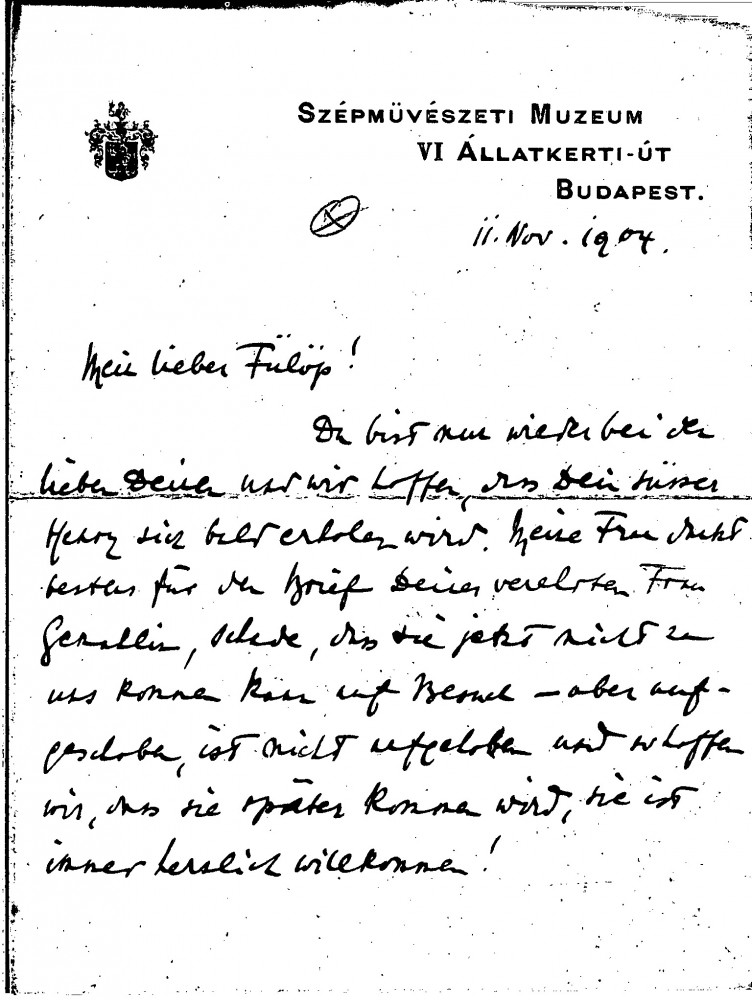 SZÉPMÜVÉSZETI MUZEUM
VI ÁLLATKERTI-ÚT
BUDAPEST.
11. Nov. 1904.
Mein lieber Fülöp!
Du bist nun wieder bei den
lieben Deinen und wir hoffen, dass Dein süsser
Henry sich bald erholen wird. Meine Frau dankt
bestens für den Brief Deiner verehrten Frau
Gemahlin, schade, dass sie jetzt nicht zu
uns kommen kann auf Besuch – aber auf-
geschoben, ist nicht aufgehoben und so hoffen
wir, dass sie später kommen wird, sie ist
immer herzlich willkommen!